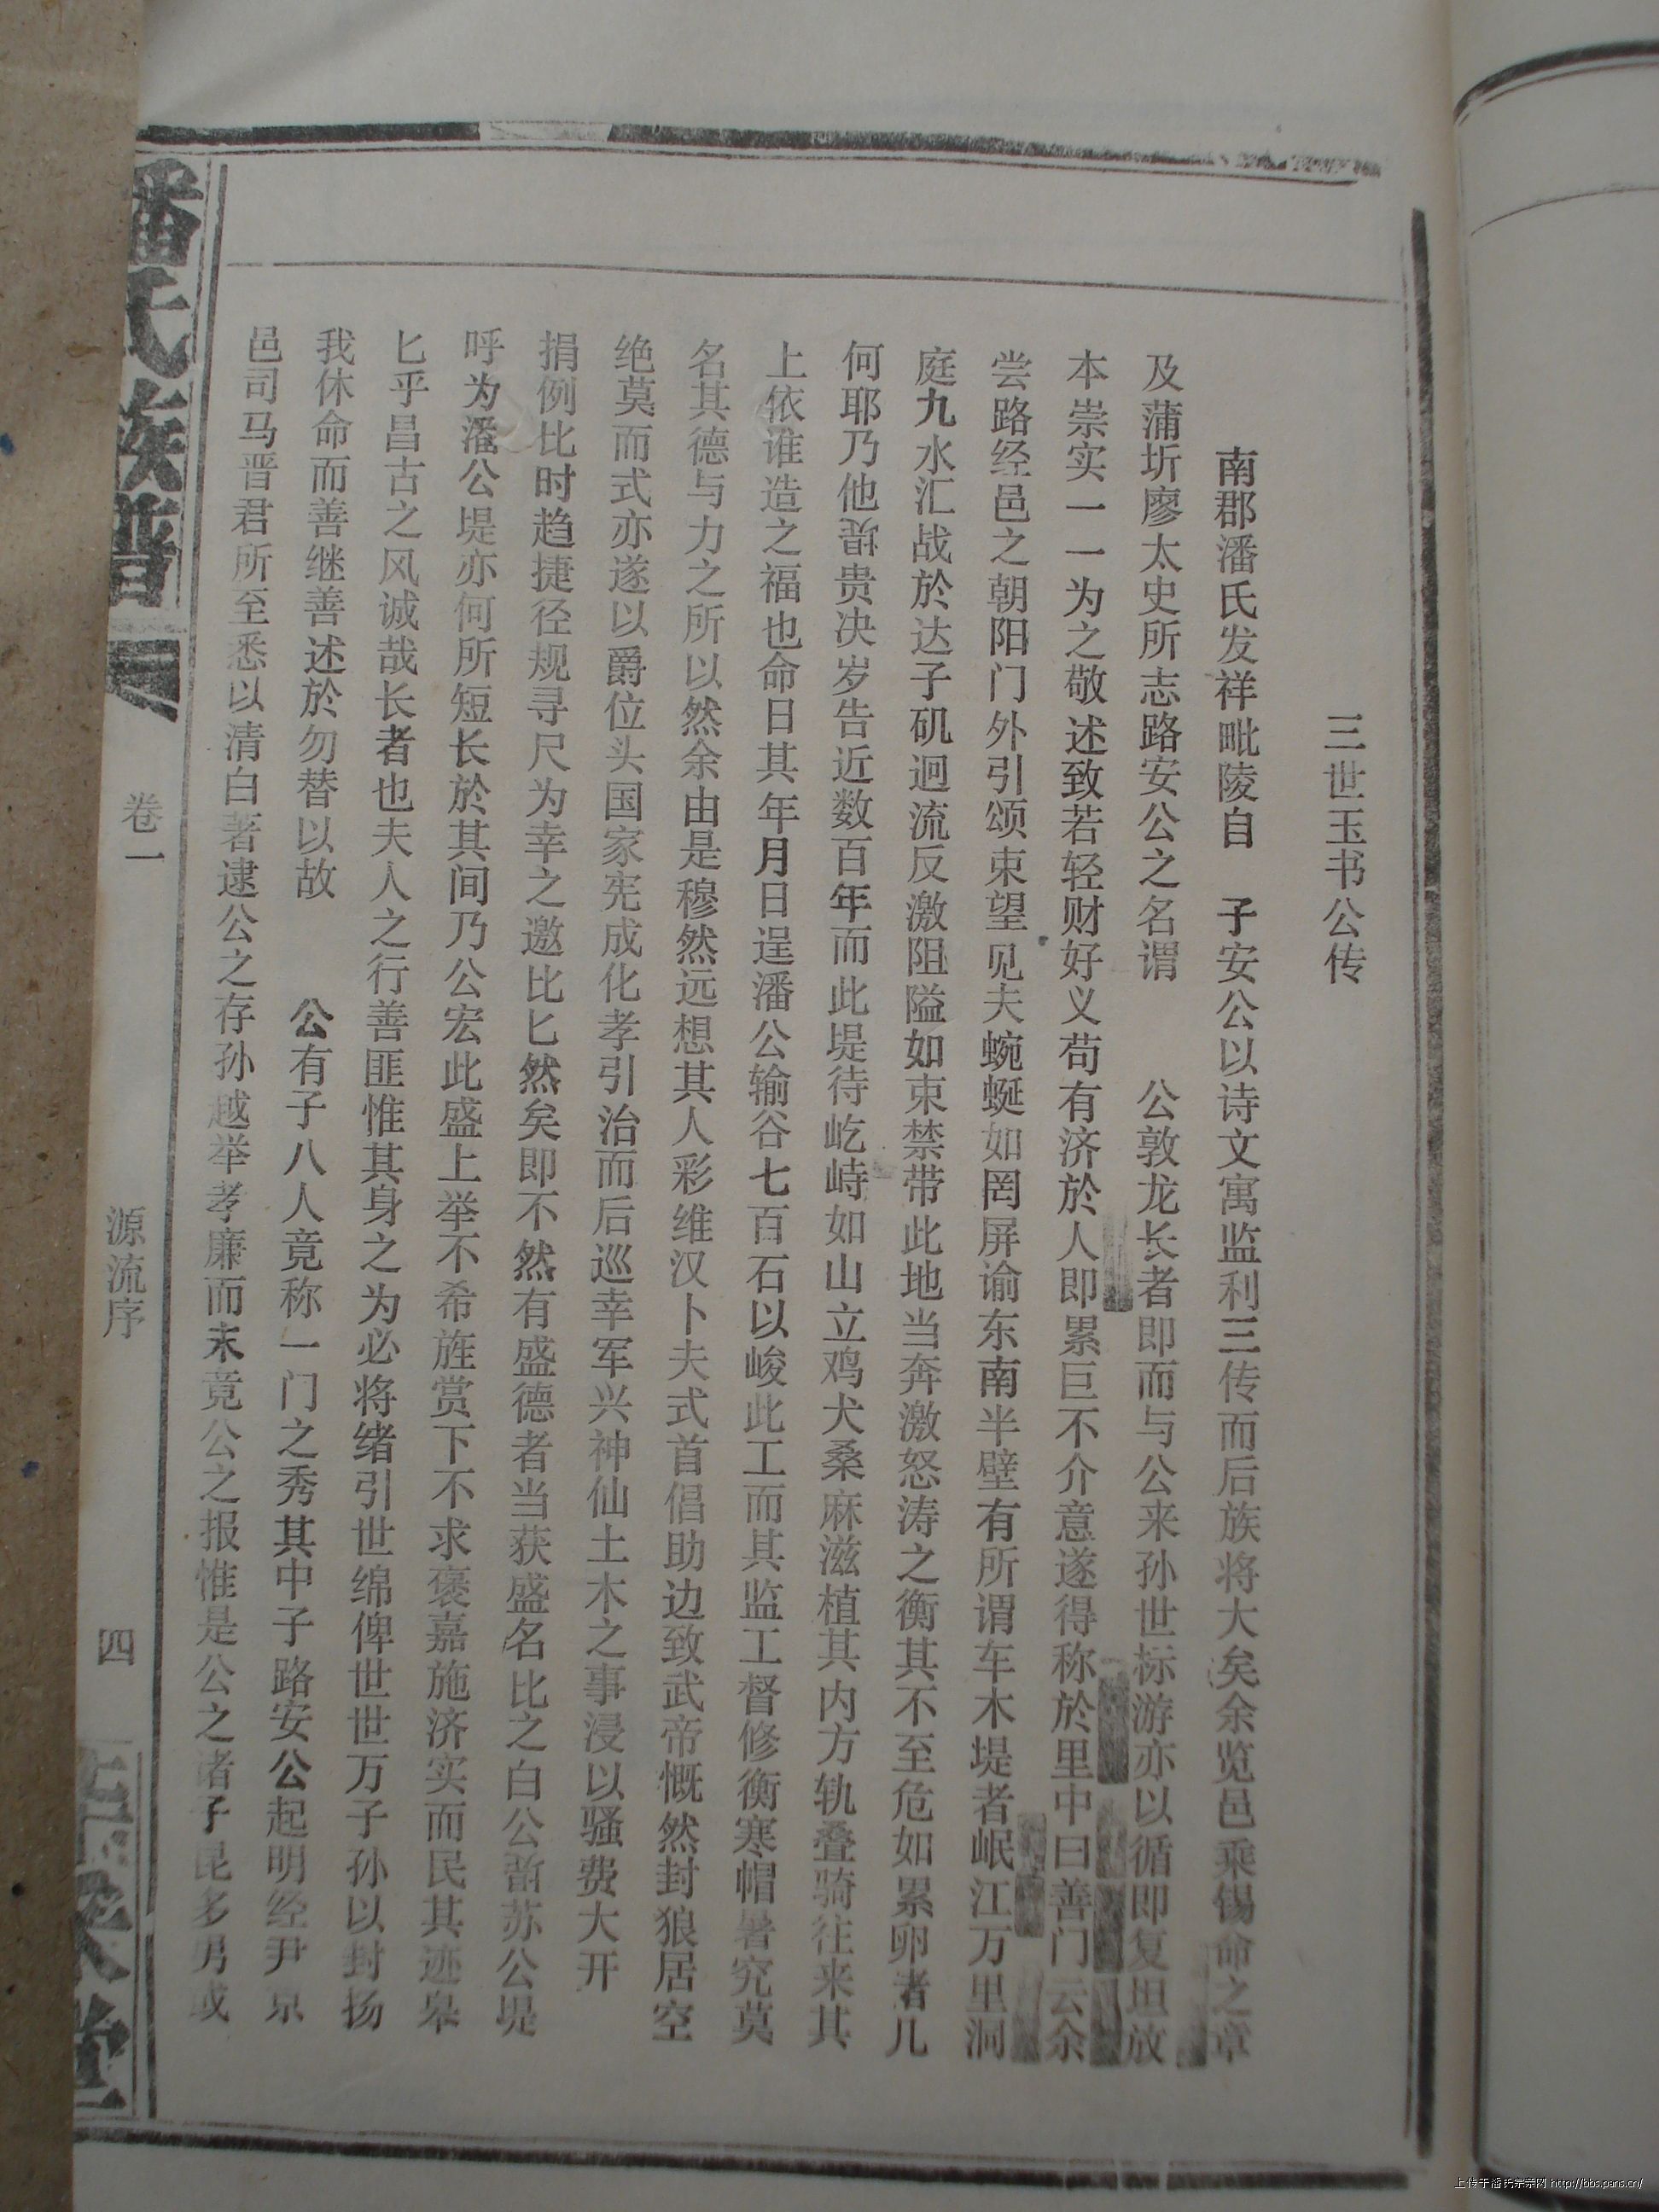 三世玉书公传
南郡潘氏发祥毗陵自 子安公以诗文寓监利三传而后族将大矣余览邑乘锡命之章
及蒲圻廖太史所志路安公之名谓 公敦龙长者即而与公来孙世标游亦以循即复坦放
本崇实一一为之敬述致若轻财好义苟有济於人即累巨不介意遂得称於里中曰善门云余
尝路经邑之朝阳门外引颂束望见夫蜿蜒如罔屏谕东南半壁有所谓车木堤者岷江万里洞
庭九水汇战於达子矶迥流反激阻隘如束禁带此地当奔激怒涛之衡其不至危如累卵者儿
何耶乃他 贵决岁告近数百年而此堤待屹峙如山立鸡犬桑麻滋植其内方轨叠骑往来其
上依谁造之福也命日其年月日逞潘公输谷七百石以峻此工而其监工督修衡寒帽暑究莫
名其德与力之所以然余由是穆然远想其人彩维汉卜夫式首倡助边致武帝慨然封狼居空
绝莫而式亦遂以爵位头国家宪成化孝引治而后巡幸军兴神仙土木之事浸以骚费大开
捐例比时趋捷径规寻尺为幸之邀比匕然矣即不然有盛德者当获盛名比之白公 苏公堤
呼为潘公堤亦何所短长於其间乃公宏此盛上举不希旌赏下不求褒嘉施济实而民其迹皋
匕乎昌古之风诚哉长者也夫人之行善匪惟其身之为必将绪引世绵俾世世万子孙以封扬
我休命而善继善述於勿替以故 公有子八人竟称一门之秀其中子路安公起明经尹京
邑司马晋君所至悉以清白著逮公之存孙越举孝廉而未竟公之报惟是公之诸子昆多男或
潘氏族谱
卷一
源流序
四
堂
上传于潘氏宗亲网 http://bbs.pans.cn/